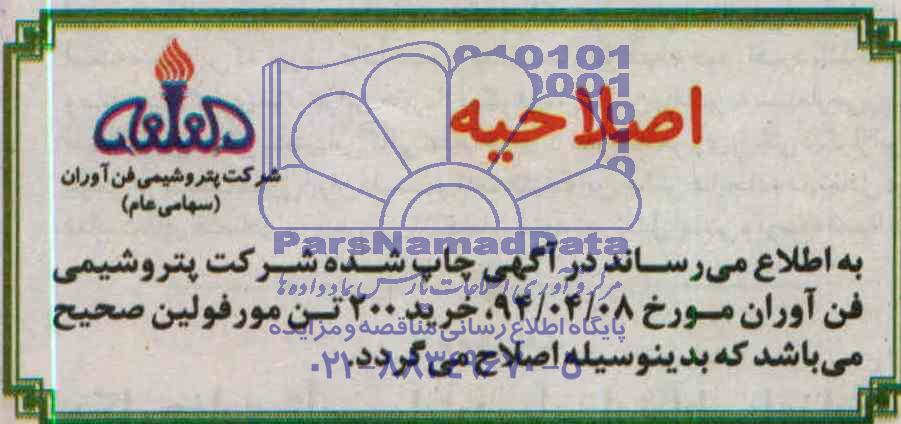 اصلاحیه
شرکت پتروشیمی فن آوران
(سهامی عام)
به اطلاع می‌رساند در آگهی چاپ شده شرکت پتروشیمی
فن آوران مورخ ۹۴/۰۴/۰۸، خرید ۲۰۰ تن مورفولین صحیح
می‌باشد که بدینوسیله اصلاح می گردد.
ParsNamadData
مرکز فرآوری اطلاعات پارس نماد داده ها
پایگاه اطلاع رسانی مناقصه و مزایده
۰۲۱-۸۸۳۴۹۶۷۰-۵